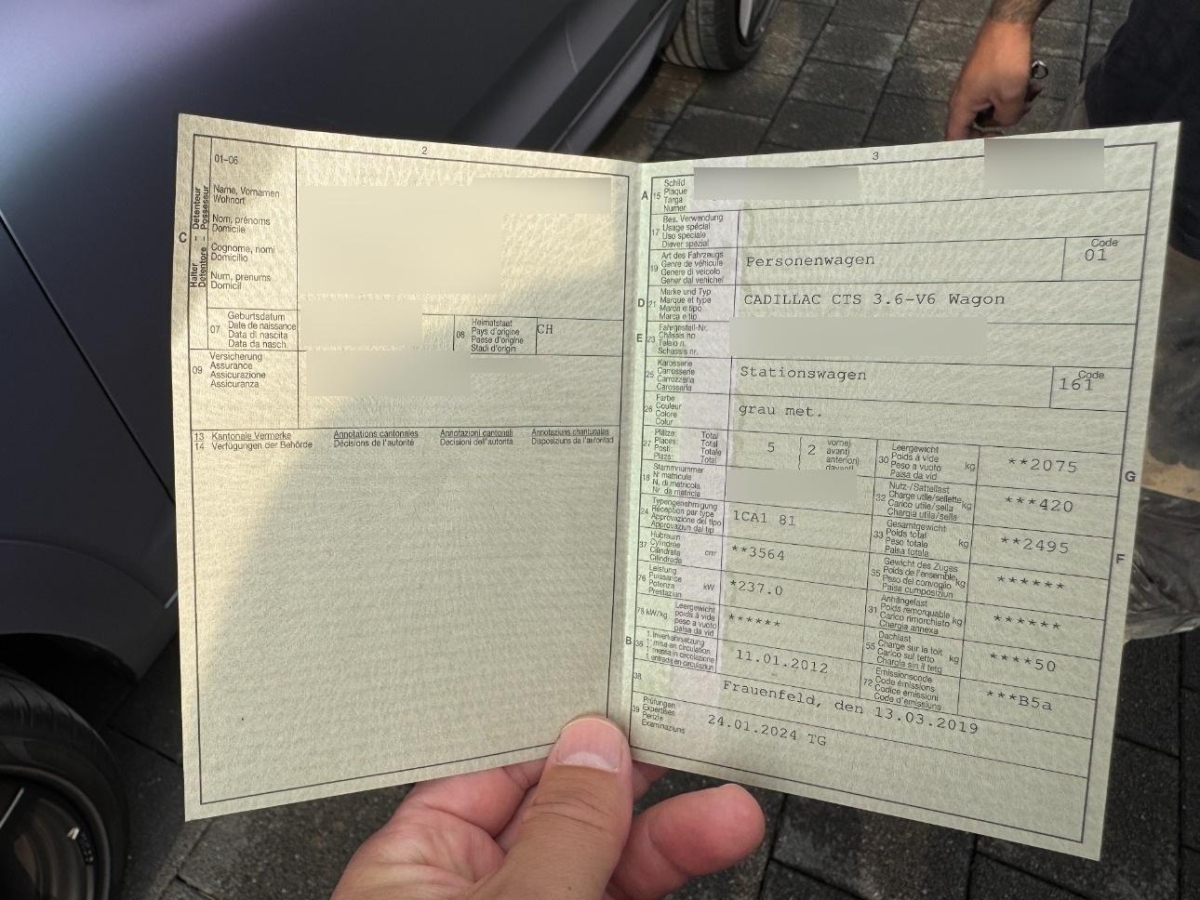 2
01-06
C
Detenteur
Possesseur
Halter
Detentore
Name, Vornamen
Wohnort
Nom, prénoms
Domicile
Cognome, nomi
Domicilio
Num, prenums
Domicil
07
Geburtsdatum
Date de naissance
Data di nascita
Data da nasch.
08
Heimatstaat
Pays d'origine
Paese d'origine
Stadi d'origin
CH
09
Versicherung
Assurance
Assicurazione
Assicuranza
13 Kantonale Vermerke
14 Verfügungen der Behörde
Annotations cantonales
Décisions de l'autorité
Annotazioni cantonali
Decisioni dell'autorità
Annotaziuns chantunalas
Disposiziuns da l'autoritad
3
A 15
Schild
Plaque
Targa
Numer
17
Bes. Verwendung
Usage spécial
Uso speciale
Diever spezial
19
Art des Fahrzeugs
Genre de véhicule
Genere di veicolo
Gener dal vehichel
Personenwagen
Code
01
D 21
Marke und Typ
Marque et type
Marca e tipo
Marca e tip
CADILLAC CTS 3.6-V6 Wagon
E 23
Fahrgestell-Nr.
Châssis no
Telaio n.
Schassis nr.
25
Karosserie
Carrosserie
Carrozzeria
Carossaria
Stationswagen
Code
161
26
Farbe
Couleur
Colore
Colur
grau met.
27
Plätze: Total
Places: Total
Posti: Totale
Plazs: Total
5
2
vorne
avant
anteriori
davant
18
Stammnummer
N° matricule
N. di matricola
Nr. da matricla
24
Typengenehmigung
Réception par type
Approvazione del tipo
Approvaziun dal tip
1CA1 81
37
Hubraum
Cylindrée
Cilindrata
Cilindrada
cm³
**3564
76
Leistung
Puissance
Potenza
Prestaziun
kW
*237.0
78 kW/kg
Leergewicht
poids à vide
peso a vuoto
paisa da vid
******
B 36
1. Inverkehrsetzung
1. mise en circulation
1. messa in circolazione
1. entrada en circulaziun
11.01.2012
30
Leergewicht
Poids à vide
Peso a vuoto
Paisa da vid
kg
**2075
G
32
Nutz-/Sattellast
Charge utile/sellette
Carico utile/sella
Chargia utila/sella
kg
***420
33
Gesamtgewicht
Poids total
Peso totale
Paisa totala
kg
**2495
F
35
Gewicht des Zuges
Poids de l'ensemble
Peso del convoglio
Paisa cumposiziun
kg
******
31
Anhängelast
Poids remorquable
Carico rimorchiato
Chargia annexa
kg
******
55
Dachlast
Charge sur le toit
Carico sul tetto
Chargia sin il tetg
kg
****50
72
Emissionscode
Code émissions
Codice emissioni
Code d'emissiuns
***B5a
38
Frauenfeld, den 13.03.2019
39
Prüfungen
Expertises
Perizie
Examinaziuns
24.01.2024 TG